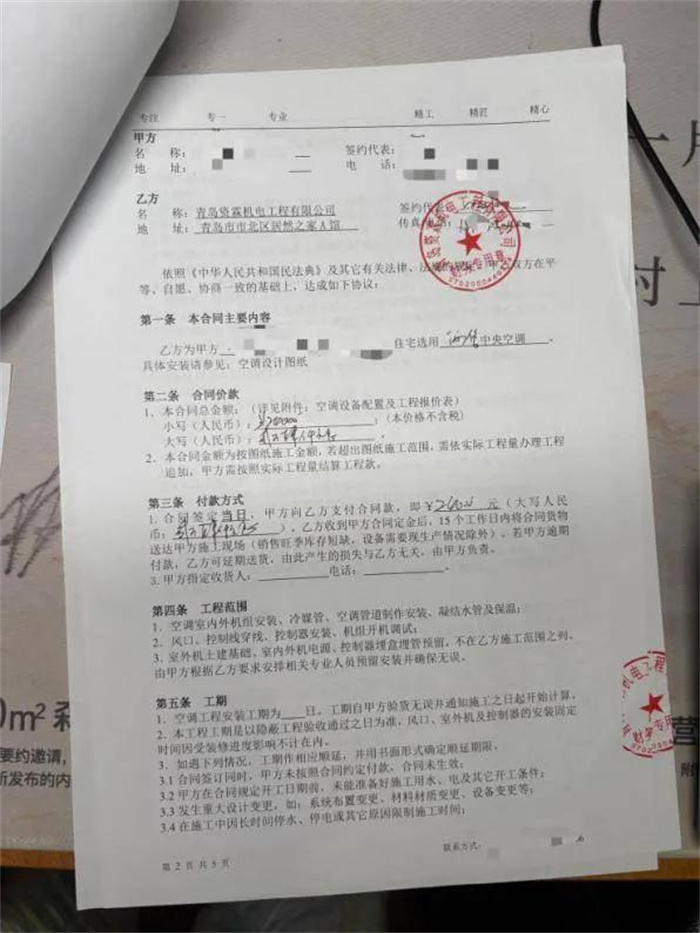 专注 专一 专业 精工 精匠 精心
甲方
名 称： 签约代表：
地 址： 电 话：
乙方
名 称：青岛资霖机电工程有限公司 签约代表：
地 址： 青岛市市北区居然之家A馆 传真电话：
依照《中华人民共和国民法典》及其它有关法律、法规的规定，甲乙双方在平
等、自愿、协商一致的基础上，达成如下协议：
第一条 本合同主要内容
乙方为甲方 住宅选用 中央空调 。
具体安装请参见：空调设计图纸
第二条 合同价款
1、本合同总金额：（详见附件：空调设备配置及工程报价表）
小写（人民币）： ；（本价格不含税）
大写（人民币）：
2、本合同金额为按图纸施工金额，若超出图纸施工范围，需依实际工程量办理工程
追加，甲方需按照实际工程量结算工程款。
第三条 付款方式
1. 合同签定当日，甲方向乙方支付合同款，即 元（大写人民
币： ），乙方收到甲方合同定金后，15个工作日内将合同货物
送达甲方施工现场（销售旺季库存短缺，设备需要现生产情况除外）。若甲方逾期
付款，乙方可延期送货，由此产生的损失与乙方无关，由甲方负责。
3. 甲方指定收货人：__________电话：__________。
第四条 工程范围
1．空调室内外机组安装、冷媒管、空调管道制作安装、凝结水管及保温；
2．风口、控制线穿线、控制器安装、机组开机调试；
3．室外机土建基础、室内外机电源、控制器埋盒埋管预留，不在乙方施工范围之列。
由甲方根据乙方要求安排相关专业人员预留安装并确保无误。
第五条 工期
1．空调工程安装工期为____日，工期自甲方验货无误并通知施工之日起开始计算，
2．本工程工期是以隐蔽工程验收通过之日为准，风口、室外机及控制器的安装固定
时间因受装修进度影响不计在内。
3．如遇下列情况，工期作相应顺延，并用书面形式确定顺延期限。
3.1 合同签订同时，甲方未按照合同约定付款，合同未生效；
3.2 甲方在合同规定开工日期前，未能准备好施工用水、电及其它开工条件；
3.3 发生重大设计变更，如：系统布置变更、材料材质变更、设备变更等；
3.4 在施工中因长时间停水、停电或其它原因限制施工时间；
联系方式：
第 2 页 共 5 页
财务专用章
0m²
要约邀请，
所发布的内
营